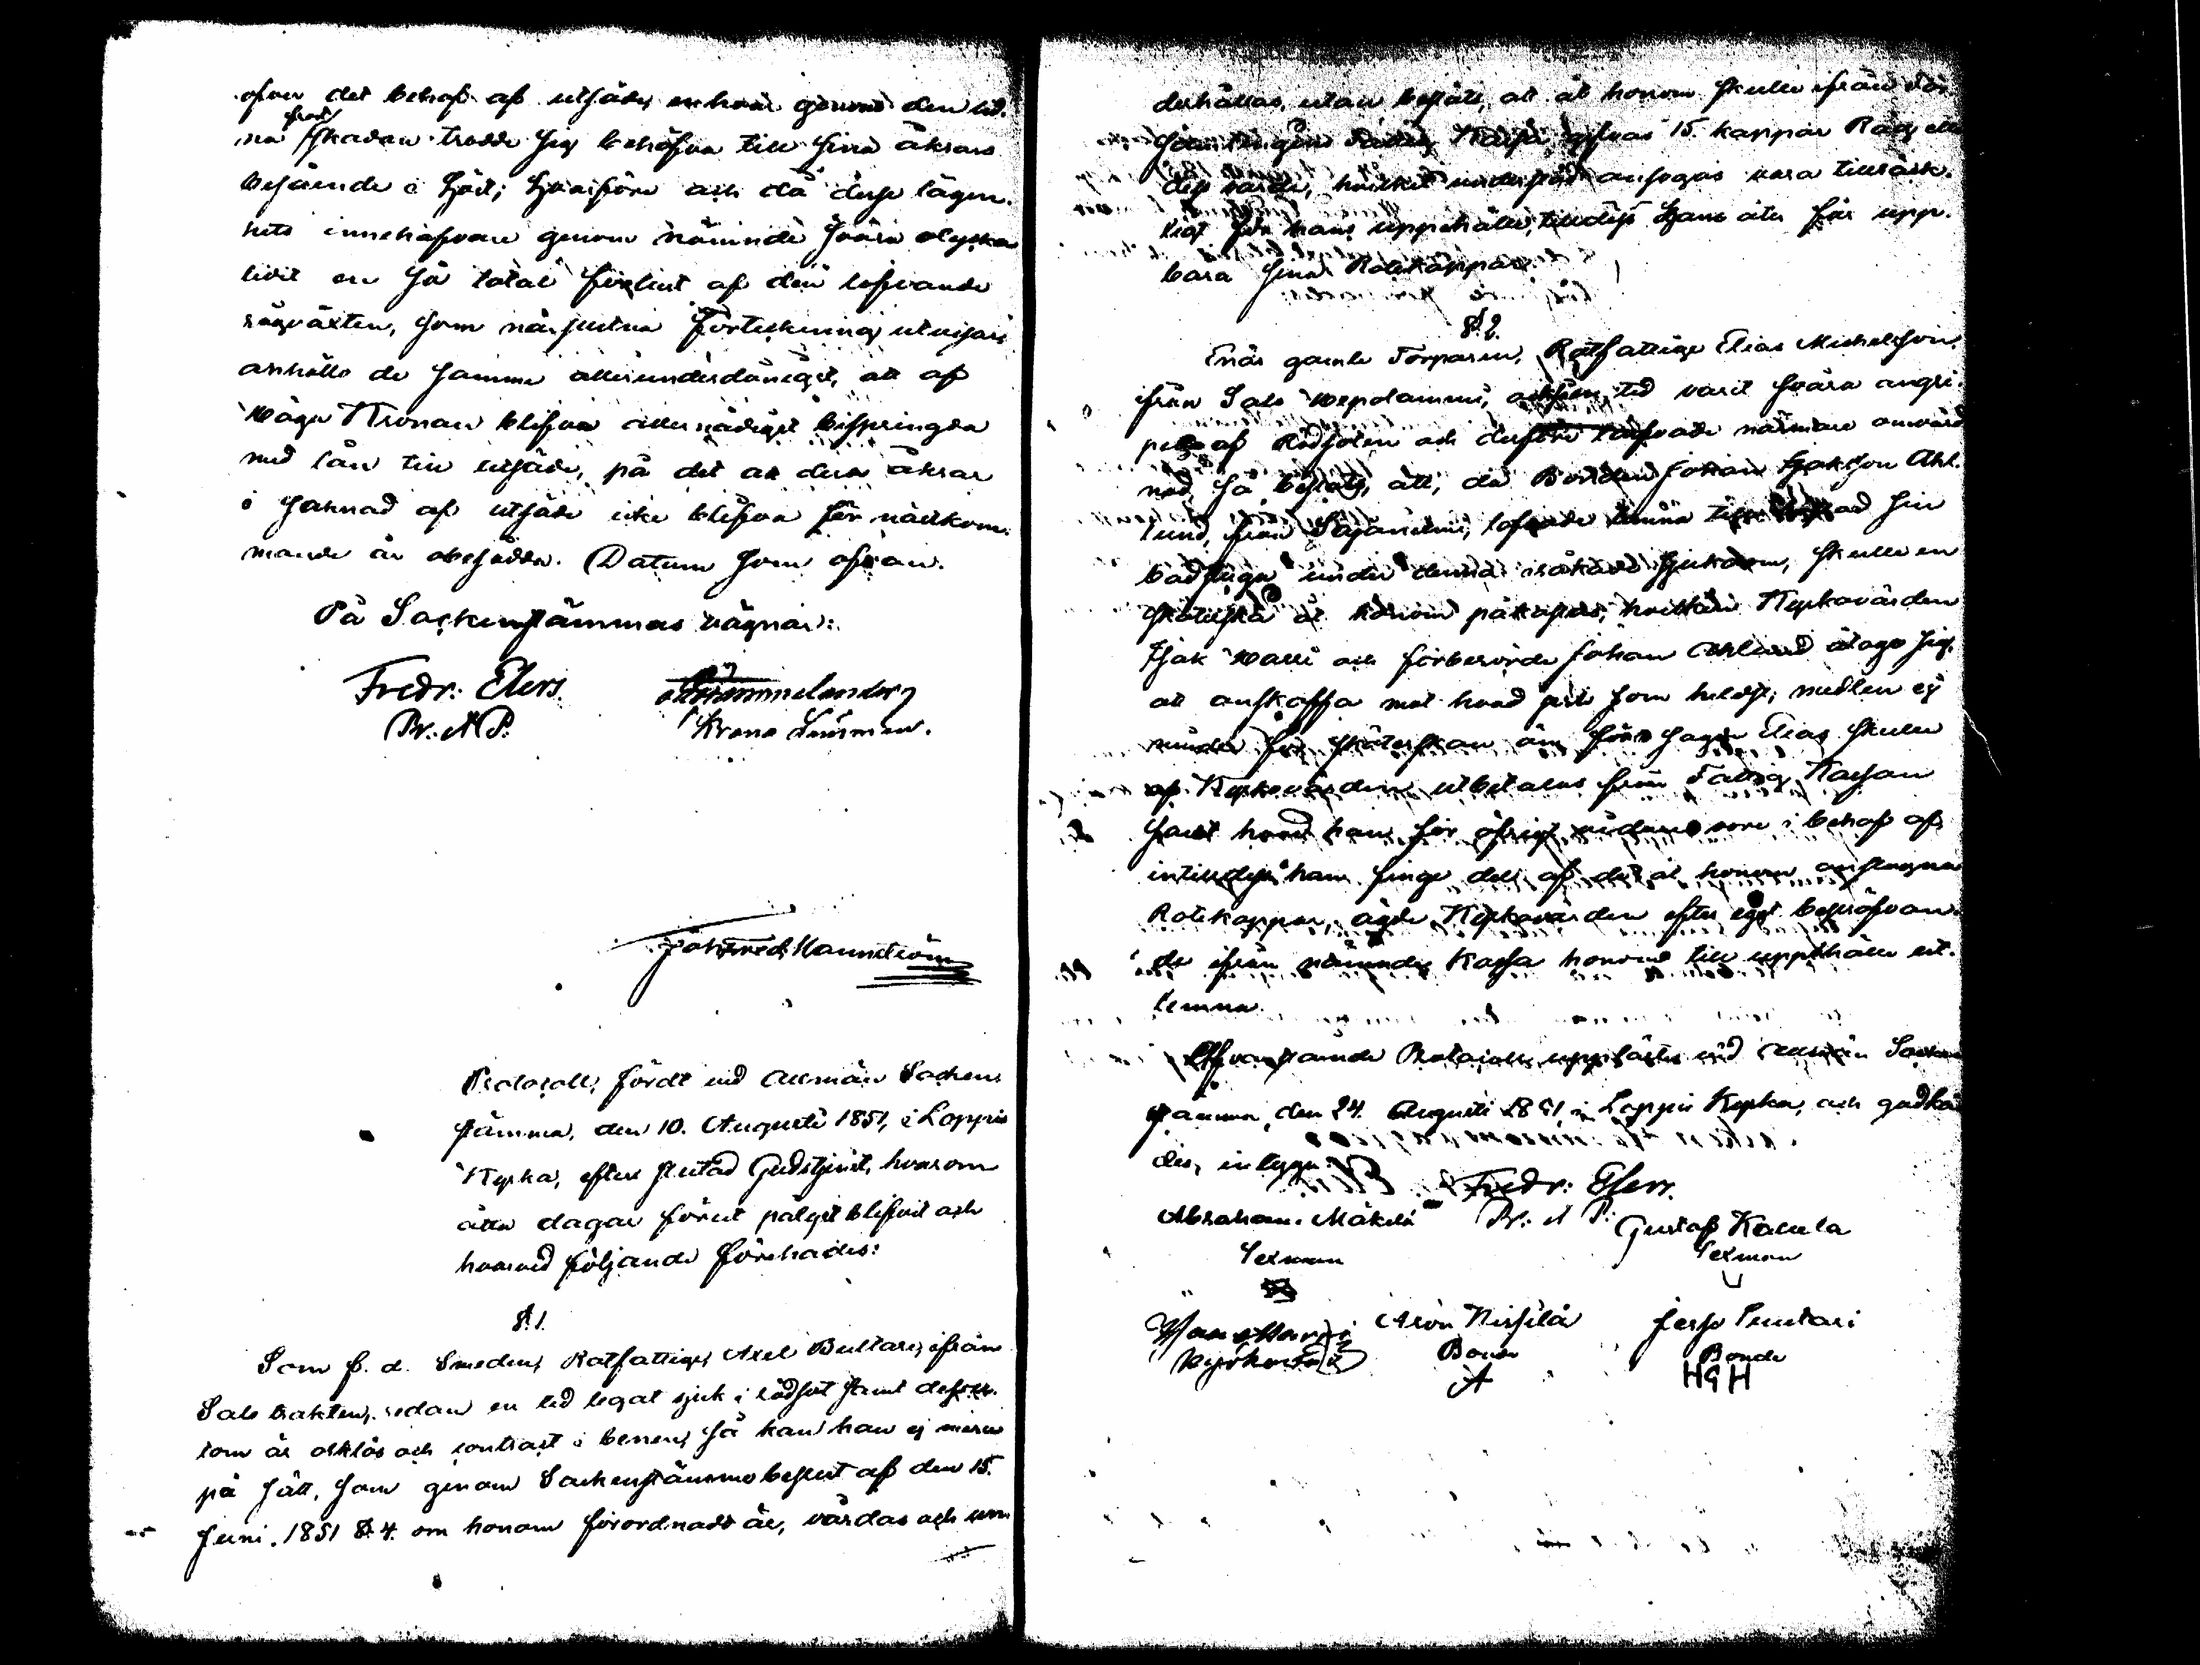 ofvan det behof af utsäde, en hvar genom den lid.
na frost skadan trodde sig behöfva till sina åkrars
besående i höst; hvarföre och då desse lägen.
hets innehafvare genom nämnde svåra olycka
lidit en så total förlust af den lofvande
rågväxten, som närslutna Förteckning utvisar,
anhålla de samma allerunderdånigst, att af
Höga Kronan blifva allernådigst bispringda
med lån till utsäde, på det att dera åkrar
i saknad af utsäde icke blifva för nästkom.
mande år obesådda. Datum som ofvan.
På Sockenstämmas vägnar:
Fredr: Elers.
Pr. N P.
Krono Länsman.
Protocoll, fördt vid Allmän Sockens
stämma, den 10. Augusti 1851, i Loppis
Kyrka, efter slutad Gudstjenst, hvarom
åtta dagar förut pålyst blifvit och
hvarvid följande förehades:
§.1.
Som f. d. Smeden, Rotfattige, Axel Bultars, ifrån
Salo trakten, sedan en tid legat sjuk i rödsot samt dessu.
tom är ocklös och contract i benen, så kan han ej mera
på sätt, som genom Sockenstämmo beslut af den 15.
Juni. 1851 §. 4. om honom förordnadt är, vårdas och un
derhållas, utan beslöts, att åt honom skulle ifrån För
samlingens Fattig Kassa gifvas 15. kappar Råg eller
dess värde, hvilket understöd ansågas vara tillräck.
ligt för hans uppehälle, tilldess han åter får upp.
bära sina Rotekappar.
§.2.
Enär gamle Torparen, Rotfattige Elias Michelsson,
ifrån Salo Wepolammi, en tid varit svåra angri.
pen af Rödsoten och derföre tarfvade närmare omvård
nad, så beslöts, att, då Bonden Johan Isaksson Ahl.
lund, från Sajaniemi, lofvade lemna sin
badstuga under denna sjukdom, skulle en
sköterska åt honom påkostas, hvilken Kyrkovärden
Isak Walli och förberörde Johan Ahllund åtogo sig,
att anskaffa mot hvad pris som helst; medlen ej
mindre för sköterskan än för sagde Elias skulle
af Kyrkovärden utbetalas från Fattig Kassan
samt hvad han för öfrigt vidare vore i behof af
intilldess han finge del af det åt honom anslagna
Rotekappar, ägde Kyrkovärden efter eget bepröfvan.
de ifrån nämnde Kassa honom till uppehälle ut.
lemna.
Offvanstående Protocoll, uppläst vid Allmän Socken
stämma, den 24. Augusti 1851 i Loppis Kyrka, och godkän
des, intyga
Fredr: Elers.
Pr. N P.
Abraham Mäkelä
Sexman
Gustaf Kaukela
Sexman
Aron Nissilä
Bonde
A
Jerfo Puntari
Bonde
HGH